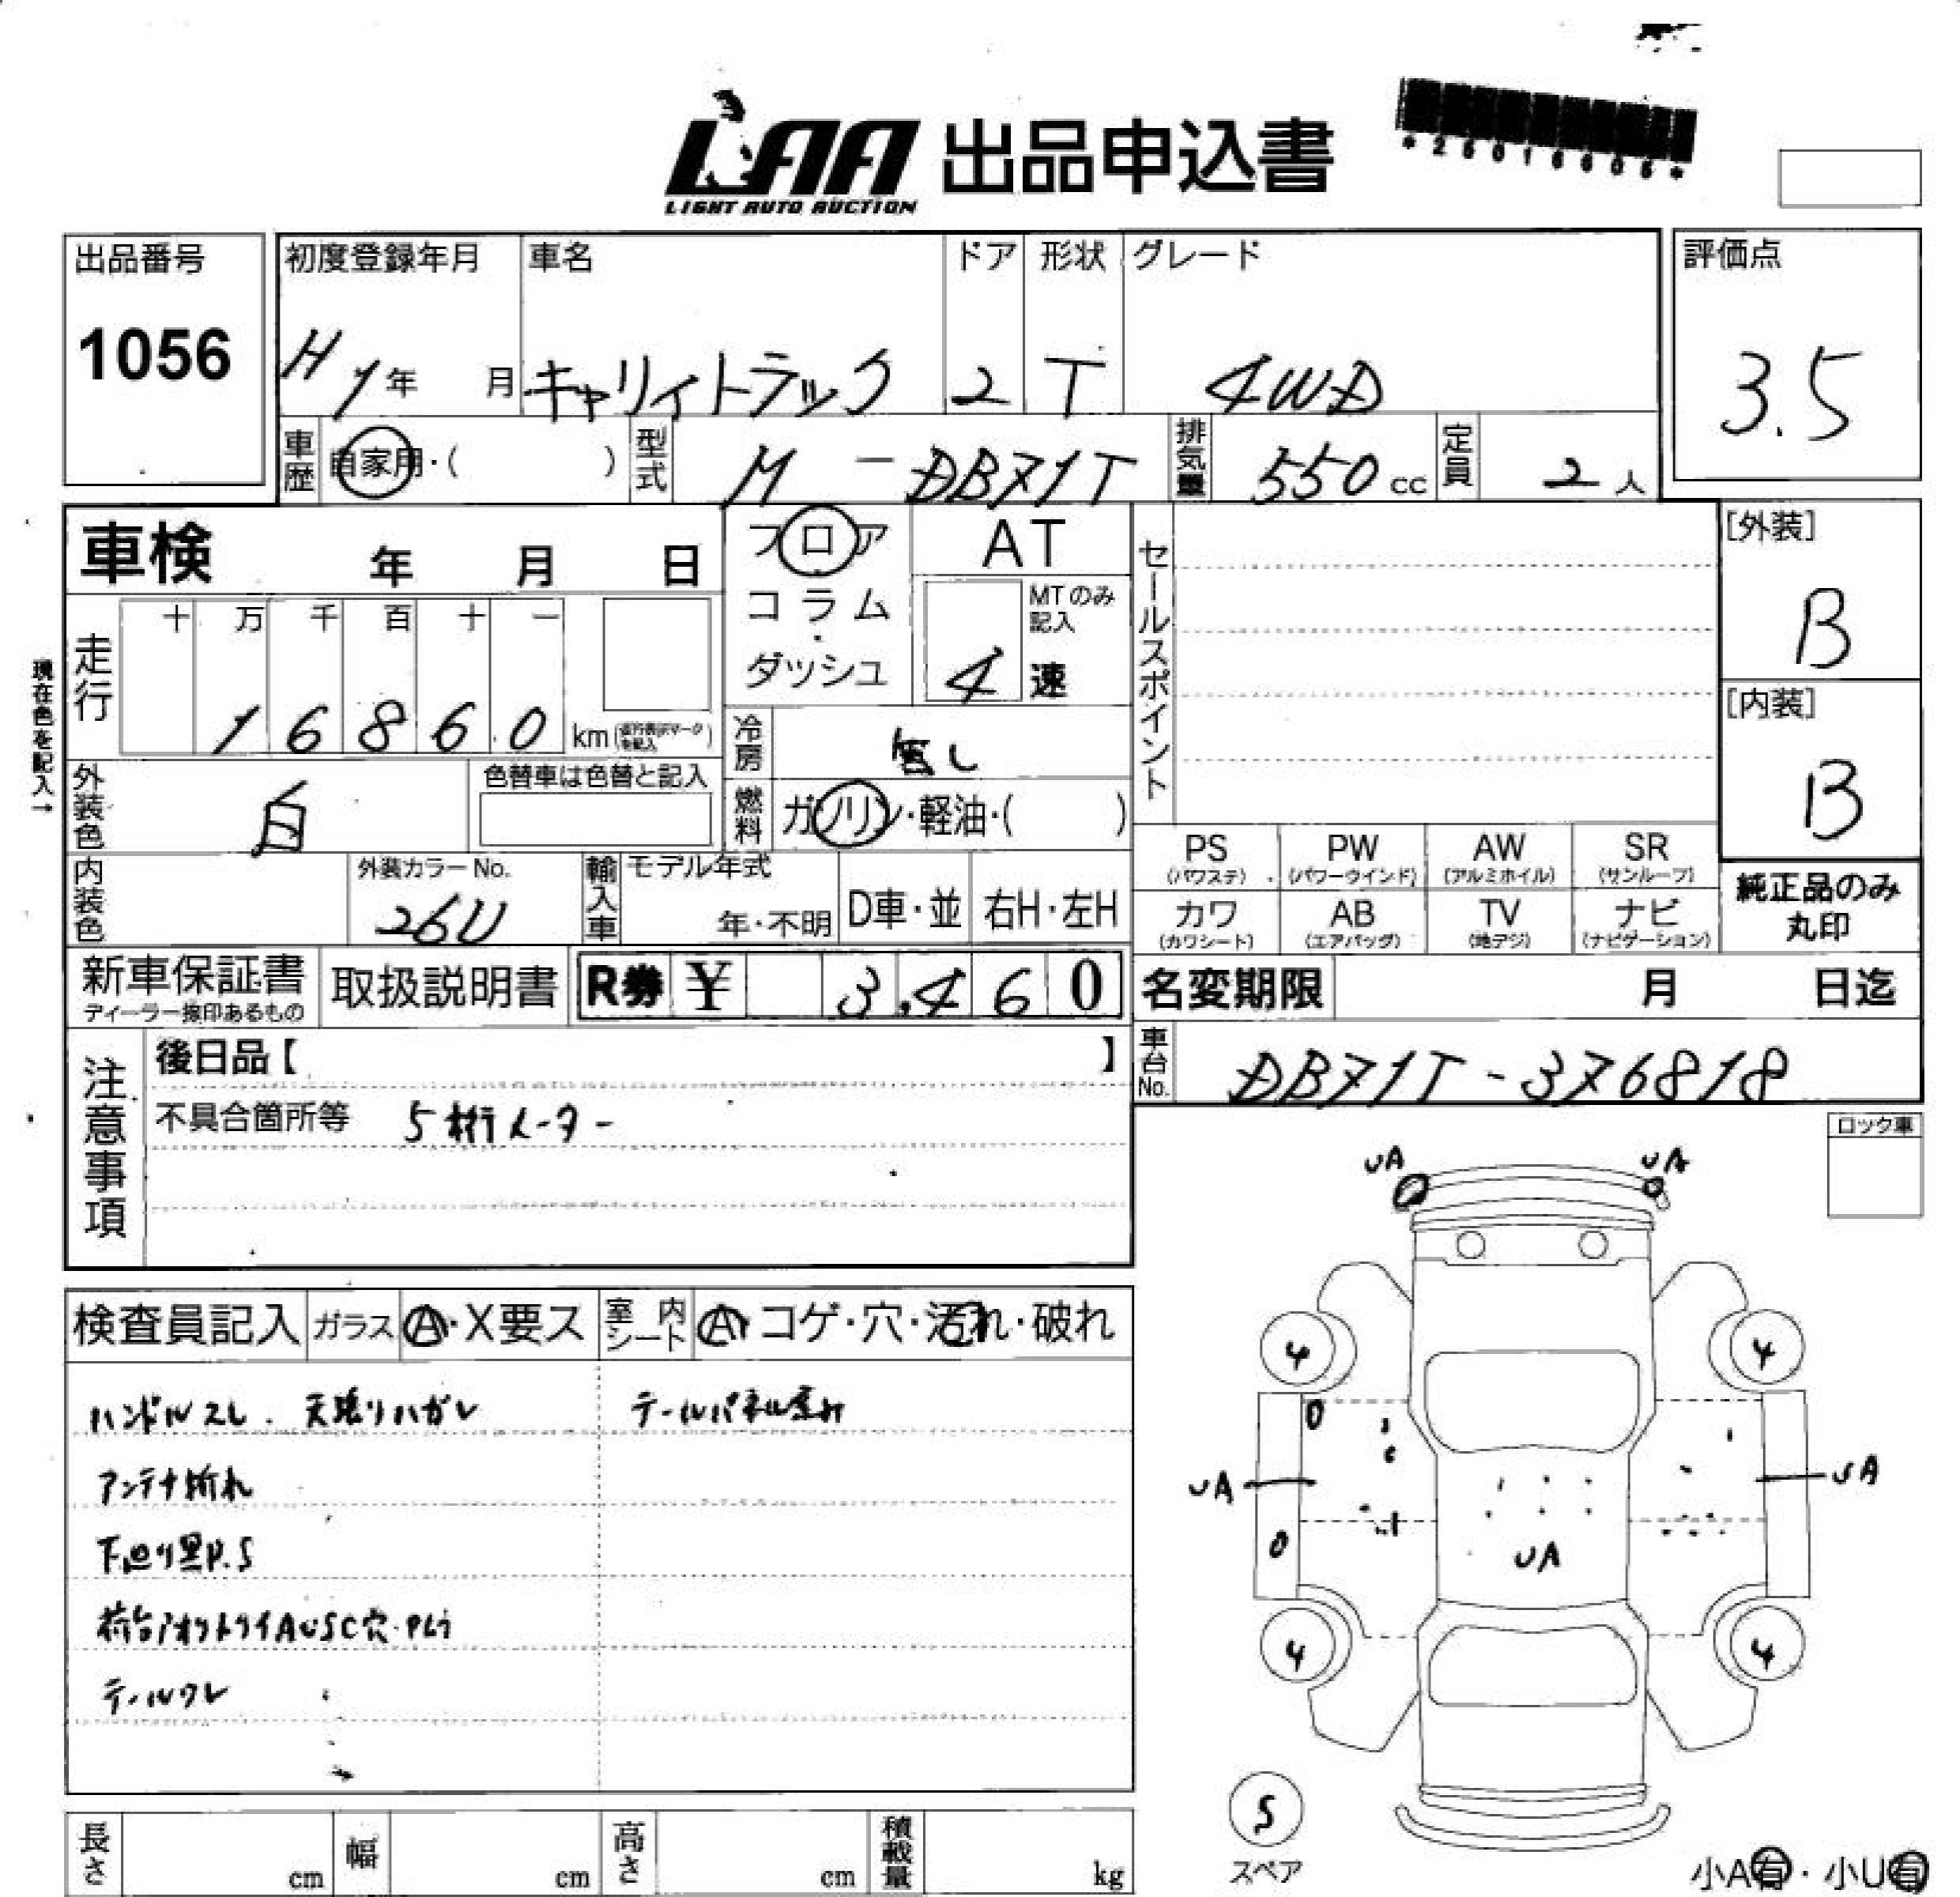 LAA 出品申込書
LIGHT AUTO AUCTION
*25016606*
出品番号
1056
初度登録年月 車名 ドア 形状 グレード
H1年 月 キャリイトラック 2 T 4WD
評価点
3.5
車歴 自家用・( ) 型式 M-DB71T 排気量 550cc 定員 2人
車検 年 月 日
フロア
コラム
ダッシュ
AT
MTのみ記入
4速
セールスポイント
[外装]
B
[内装]
B
現在色を記入→
走行
十 万 千 百 十 一
1 6 8 6 0 km
冷房 無し
外装色 白
色替車は色替と記入
燃料 ガソリン・軽油・( )
内装色
外装カラーNo.
26U
輸入車
モデル年式
年・不明
D車・並
右H・左H
PS (パワステ)
PW (パワーウインド)
AW (アルミホイル)
SR (サンルーフ)
カワ (カワシート)
AB (エアバッグ)
TV (地デジ)
ナビ (ナビゲーション)
純正品のみ
丸印
新車保証書
ディーラー捺印あるもの
取扱説明書
R券 ¥ 3,460
名変期限 月 日迄
注意事項
後日品【 】
不具合箇所等 5桁メーター
車台No. DB71T-376818
ロック車
検査員記入 ガラス A・X要ス 室内シート A・コゲ・穴・汚れ・破れ
ハンドルスレ. 天張りハガレ テールパネル歪み
アンテナ折れ
下回り黒P.S
荷台アオリトリイAUSC穴・Pムラ
テールワレ
UA UA
4 4
UA UA
UA
4 4
S
スペア
小A有・小U有
長さ cm 幅 cm 高さ cm 積載量 kg